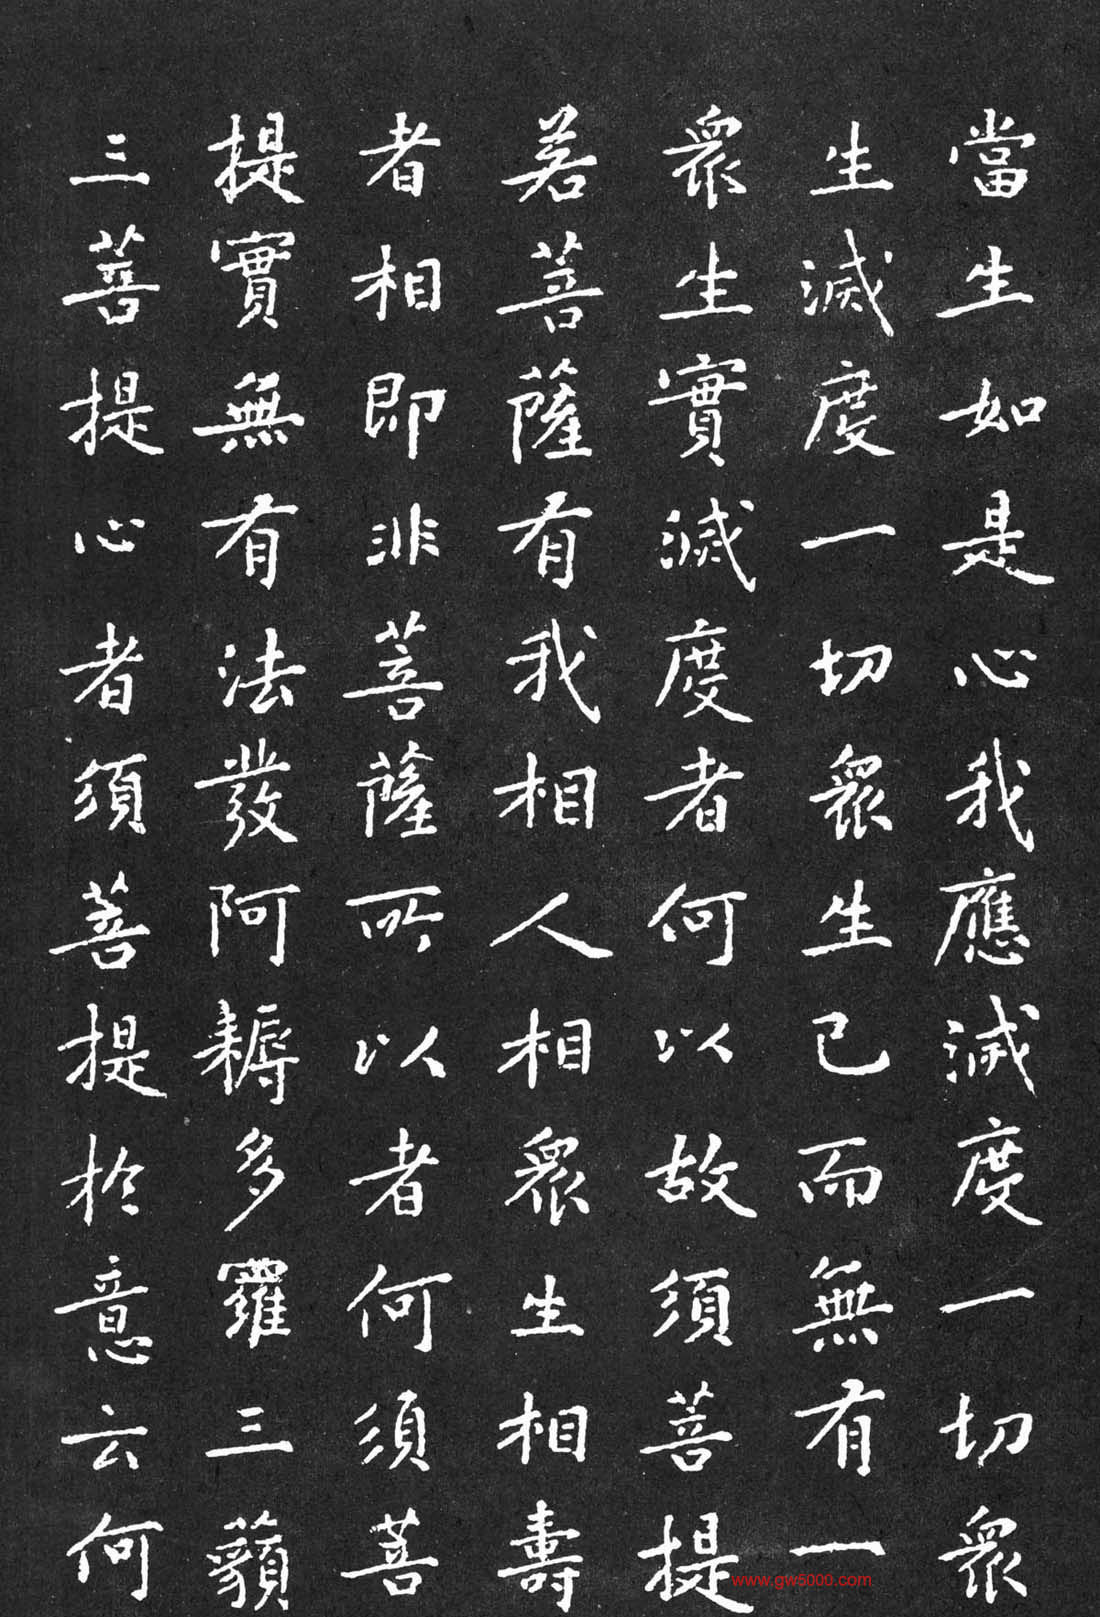 當生如是心我應滅度一切衆
生滅度一切衆生已而無有一
衆生實滅度者何以故須菩提
若菩薩有我相人相衆生相壽
者相即非菩薩所以者何須菩
提實無有法發阿耨多羅三藐
三菩提心者須菩提於意云何
www.gw5000.com